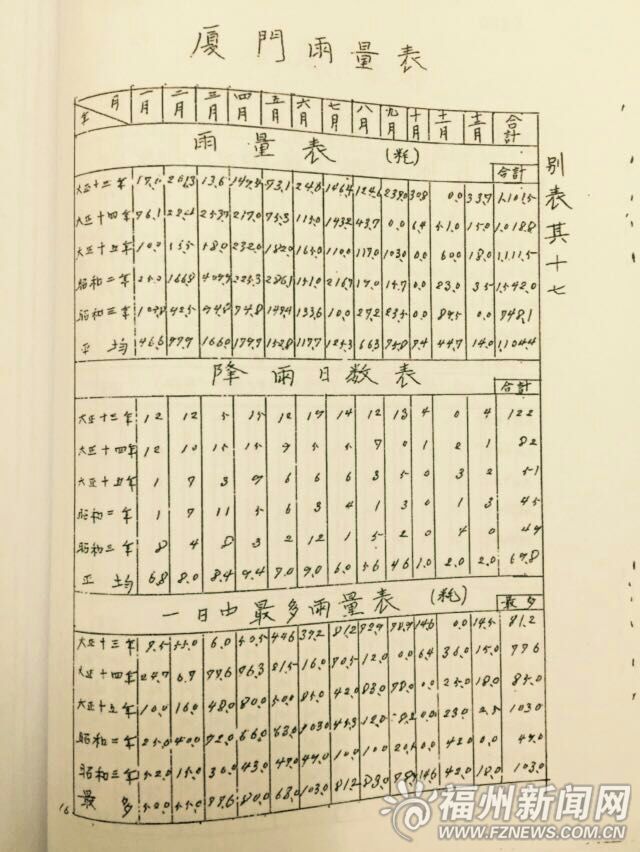 廈門雨量表
別表其十七
年 月 一月 二月 三月 四月 五月 六月 七月 八月 九月 十月 十一月 十二月 合計
雨量表 (粍) 合計
大正十三年 13.6 73.1 24.6 124.6 0.0 33.7
大正十四年 76.1 217.0 115.0 143.2 43.7 0.0 6.4 51.0 15.0 1,018.8
大正十五年 58.0 232.0 182.0 165.0 110.0 117.0 103.0 0.0 60.0 18.0 1,111.5
昭和二年 25.0 166.8 286.1 151.0 216.7 0.0 23.0 3.5 1,542.0
昭和三年 42.5 74.8 149.4 133.6 10.0 27.2 23.5 0.0 0.0 748.1
平均 46.6 77.7 166.0 179.7 152.8 117.7 125.3 66.3 75.8 9.4 44.7 14.0 1,104.4
降雨日数表 合計
大正十三年 12 12 5 15 12 17 14 12 13 4 0 4 122
大正十四年 12 10 15 15 9 5 5 7 0 1 2 1 82
大正十五年 1 7 3 9 6 6 6 3 5 0 3 2 51
昭和二年 1 7 11 5 6 3 4 1 3 0 1 3 45
昭和三年 8 4 8 3 2 12 1 5 2 0 4 0 49
平均 6.8 8.0 8.4 9.4 7.0 9.0 6.0 5.6 4.6 1.0 2.0 2.0 69.8
一日中最多雨量表 (粍) 最多
大正十三年 6.0 50.5 44.6 39.2 81.2 14.6 0.0 14.5 81.2
大正十四年 24.7 6.7 77.6 76.3 21.5 16.0 70.5 12.0 0.0 6.4 36.0 15.0 77.6
大正十五年 10.0 16.0 48.0 80.0 50.0 85.0 42.0 83.0 78.0 0.0 25.0 18.0 85.0
昭和二年 25.0 40.0 72.0 66.0 68.0 103.0 45.3 12.0 0.0 23.0 2.5 103.0
昭和三年 52.0 15.0 30.0 43.0 10.0 10.0 20.5 0.0 42.0 0.0
最多 80.0 68.0 103.0 81.2 83.0 14.6 42.0 18.0 103.0
福州新闻网
WWW.FZNEWS.COM.CN